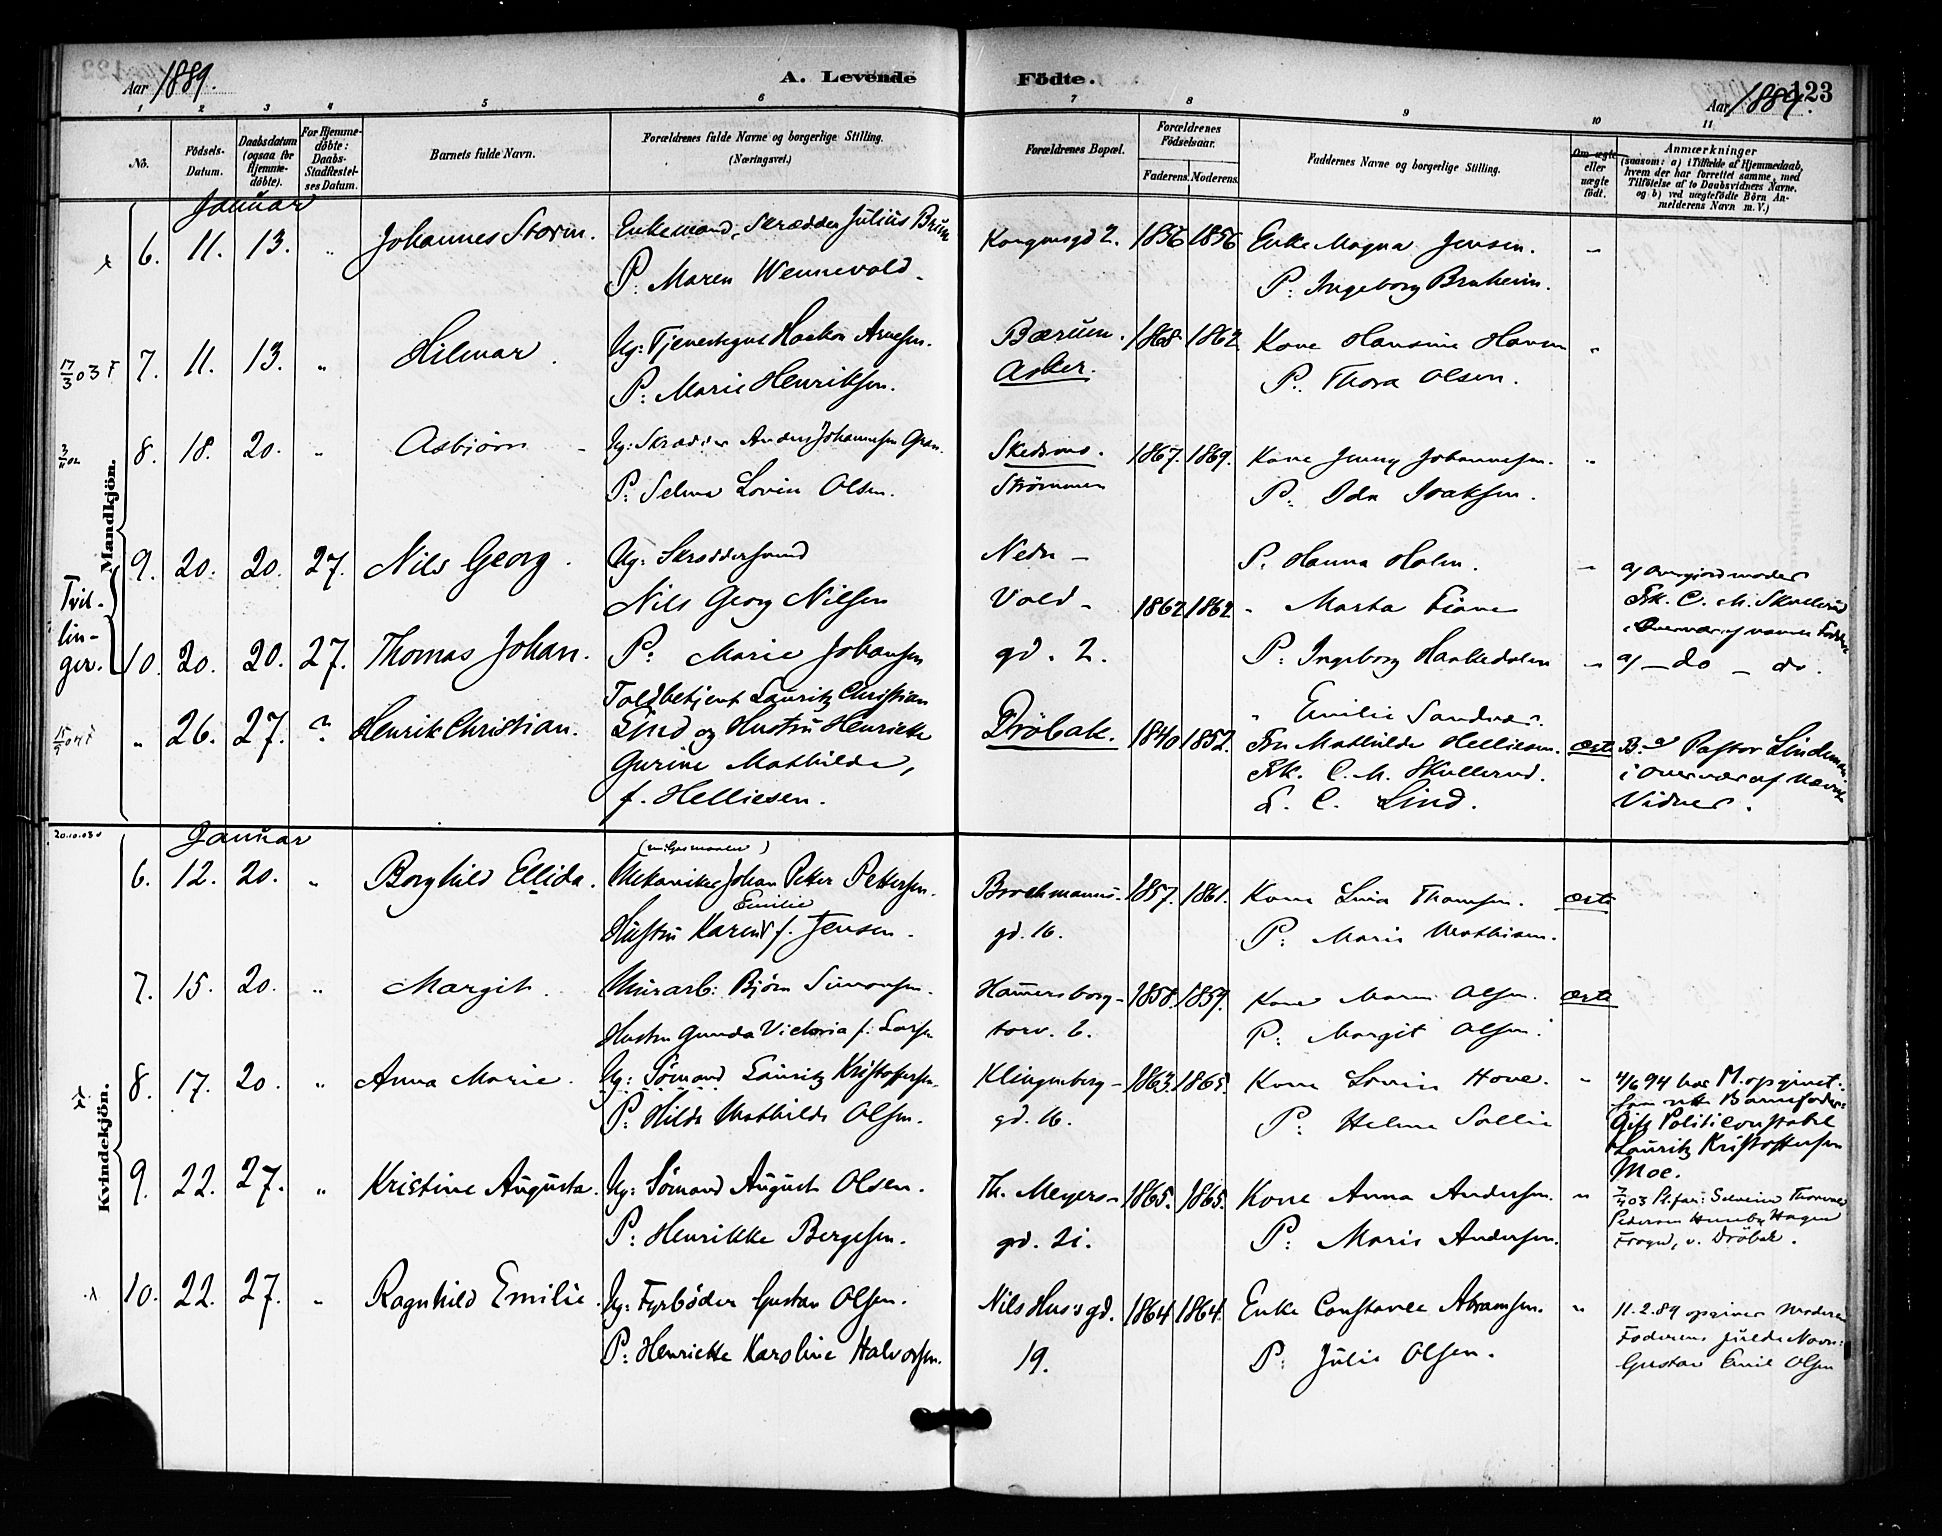 Aar 1889.
A. Levende Födte.
Aar 1889.
123
1 2 3 4 5 6 7 8 9 10 11
No.
Födsels-Datum.
Daabsdatum (ogsaa for Hjemmedöbte).
For Hjemmedöbte: Daabs-Stadfæstelses Datum.
Barnets fulde Navn.
Forældrenes fulde Navne og borgerlige Stilling. (Næringsvei.)
Forældrenes Bopæl.
Forældrenes Födselsaar.
Faderens. Moderens.
Faddernes Navne og borgerlige Stilling.
Om ægte eller uægte födt.
Anmærkninger
(saasom: a) i Tilfælde af Hjemmedaab, hvem der har forrettet samme, med Tilföielse af to Daabsvidners Navne, og b) ved uægtefödte Börn Anmelderens Navn m. V.)
Mandkjön.
Januar
6. 11. 13. " Johannes Storm. Enkemand, Skrædder Julius Bruun Kongensgd 2. 1856 1856 Enke Magna Jensen. "
P: Maren Wennevold. P: Ingeborg Bruheim.
17/3 03 F 7. 11. 13. " Hilmar. Ug: Tjenestegut Haakon Arnesen. Bærum. 1868 1862 Kone Hansine Hansen "
P: Marie Henriksen. Asker. P: Thora Olsen.
8. 18. 20. " Asbjörn Ug: Skrædder Anders Johannesen Gran. Skedsmo. 1867. 1869. Kone Jenny Johannesen. "
P: Selma Lovise Olsen. Strømmen P: Ida Isaksen.
Tvillinger.
9. 20. 20. 27. Nils Georg. Ug: Skræddersvend Nedre P. Hanna Holm. "
Nils Georg Nilsen Vold- 1862 1862 " Marta
a) Frk. C. M. Skullerud
10. 20. 20. 27. Thomas Johan. P: Marie Johansen gd. 2. P: Ingeborg " a) - do - do.
" Emilie
15/9 04 F " 26. 27. ? Henrik Christian. Toldbetjent Lauritz Christian
Lind og Hustru Henriette Dröbak. 1840 1852. Fru Mathilde Helliesen. ægte B. a) Pastor Lindeman
Gurine Mathilde, Frk. C. M. Skullerud. i Overvær af nævnte
f. Helliesen. L. C. Lind. Vidner.
Kvindekjön.
20.10.03
Januar
6. 12. 20. " Borghild Ellida. Mekaniker Johan Petter Pettersen. Brochmanns- 1857. 1861. Kone Lina Thomsen. ægte
Hustru Karen Emilie f. Jensen. gd. 16. P: Marie Mathisen.
7. 15. 20. " Margit. Murarb: Bjørn Simonsen. Hammersborg- 1858. 1859. Kone Maren Olsen. ægte
Hustru Gunda Victoria f. Larsen torv. 6. P: Margit Olsen.
8. 17. 20. " Anna Marie. Ug: Sömand Lauritz Kristoffersen. Klingenberg- 1863. 1865. Kone Lovise Hove. " 4/6 94 har M. opgivet
P: Hilda Mathilde Olsen. gd. 16. P: Helma Sollie som rette Barnefader:
Gift Politiconstabel
Lauritz Kristoffersen
Moe.
9. 22. 27. " Kristine Augusta. Ug: Sömand August Olsen. Th. Meyers- 1865. 1865. Kone Anna Andersen. " 03 Pl.far: Thorvald
P: Henrikke Bergesen. gd. 21. P: Marie Andersen. Pedersen Hagen
Frogn, v. Dröbak.
10. 22. 27. " Ragnhild Emilie. Ug: Fyrböder Gustav Olsen. Nils Hus's gd. 1864 1864. Enke Constance Abramsen. " 11.2.89 opgiver Moderen
P: Henriette Karoline Halvorsen. 19. P: Julie Olsen. Faderens fulde Navn:
Gustav Emil Olsen